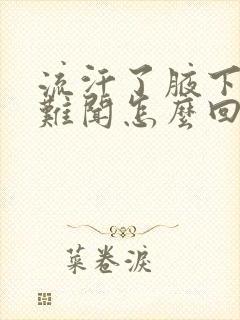 流汗了腋下
難聞怎麼回
菜卷淚